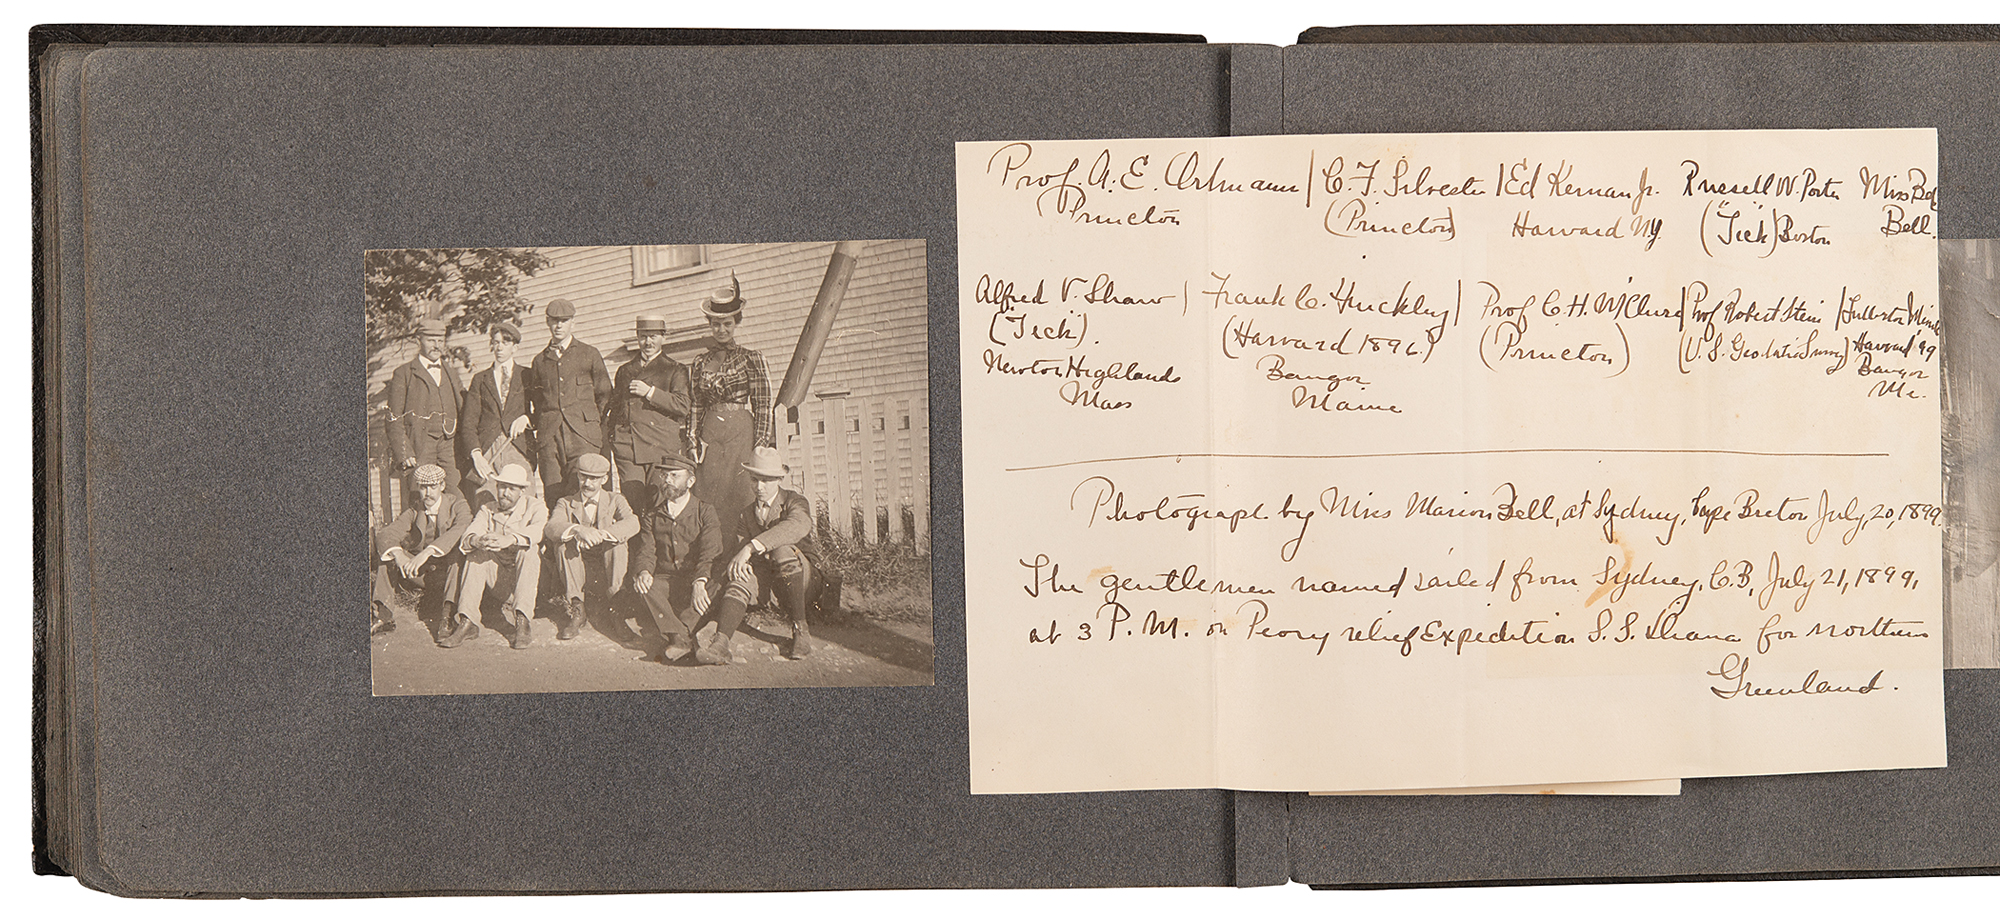 Prof. A. E. Ortmann | C. F. Silvester | Ed Kernan Jr. Russell W. Porter Miss Bell
Princeton (Princeton) Harvard N.Y. ("Tech") Boston Bell.
Alfred V. Shaw | Frank C. Hinckley | Prof C. H. McClure | Prof Robert Stein |
("Tech"). (Harvard 1896.) (Princeton) (U. S. Geodetic Survey) Harvard 99
Newton Highlands Bangor Bangor
Mass Maine Me.
Photograph by Miss Marion Bell, at Sydney, Cape Breton July, 20, 1899.
The gentlemen named sailed from Sydney, C. B, July 21, 1899,
at 3 P. M. on Peary relief Expedition S. S. Diana for northern
Greenland.